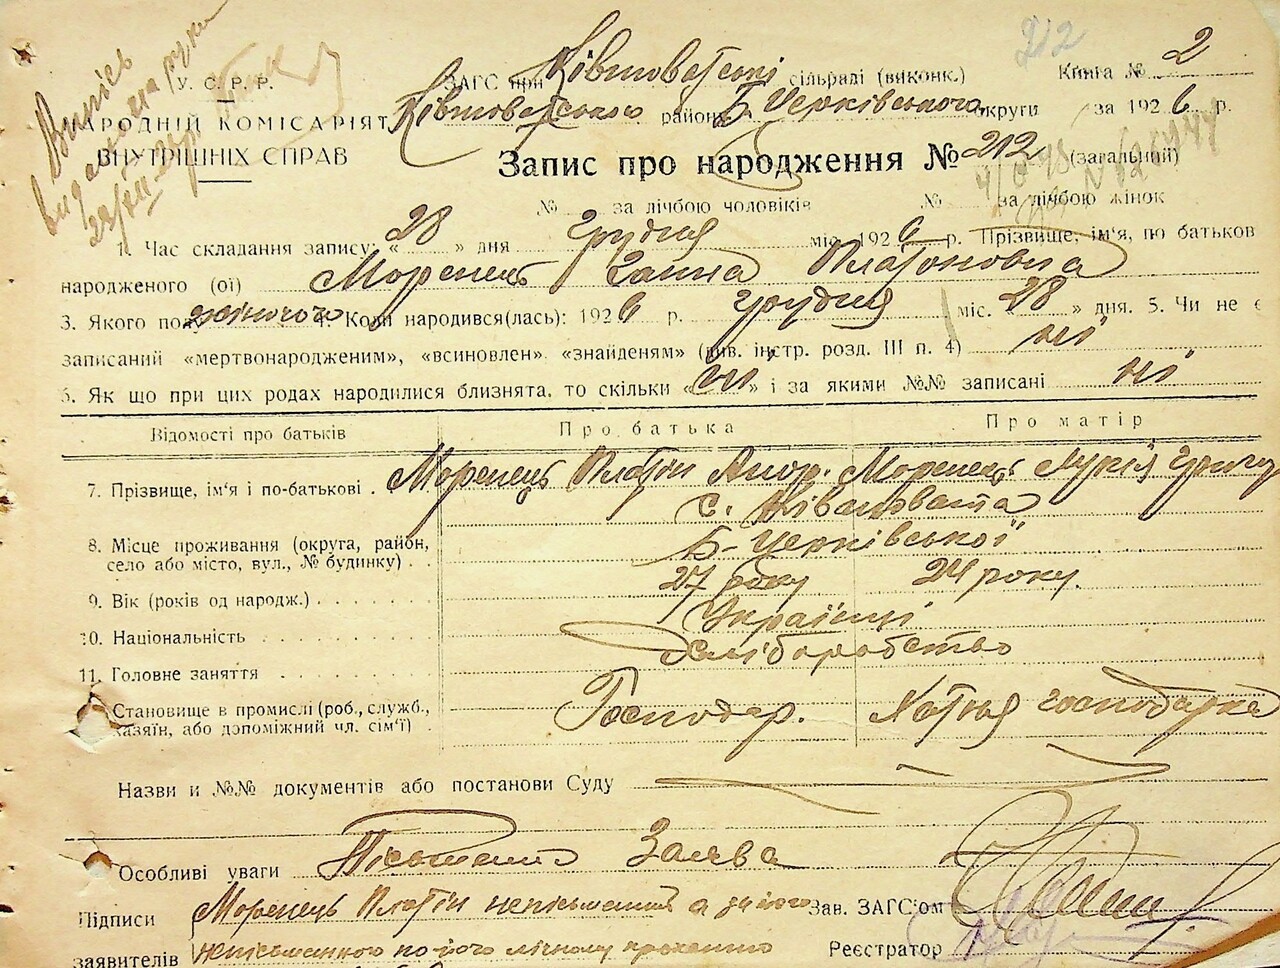 Випись
видана на руки
212
У.С.Р.Р.
НАРОДНІЙ КОМІСАРІЯТ
ВНУТРІШНІХ СПРАВ
ЗАГС при Ківшоватські сільраді (виконк.) Книга № 2
Ківшоватського району Б Черківського округи за 1926 р.
Запис про народження № 212 (загальний)
№ за лічбою чоловіків № за лічбою жінок
1. Час складання запису: «28» дня Грудня міс. 1926 р. Прізвище, ім'я, по батьков
народженого (ої) Моренець Ганна Платоновна
3. Якого полу жіночого 4. Коли народився(лась): 1926 р. грудня міс. «28» дня. 5. Чи не є
записаний «мертвонародженим», «всиновлен» «знайденям» (див. інстр. розд. III п. 4) ні
6. Як що при цих родах народилися близнята, то скільки «ні» і за якими №№ записані ні
Відомості про батьків Про батька Про матір
7. Прізвище, ім'я і по-батькові . Моренець Платін Моренець Лукія Григо
с. Ківшовата
8. Місце проживання (округа, район, село або місто, вул., № будинку) . Б-Черківської
9. Вік (років од народж.) 27 року 24 року.
10. Національність Українці
11. Головне заняття Хліборобство
Становище в промислі (роб., служб., хазяїн, або допоміжний чл. сім'ї) . Господар. Хатня господарка
Назви и №№ документів або постанови Суду
Особливі уваги Пісьменна Заява
Підписи Моренець Платін непісьменний а за його Зав. ЗАГС'ом
заявителів непісьменного по його лічному проханню Реєстратор